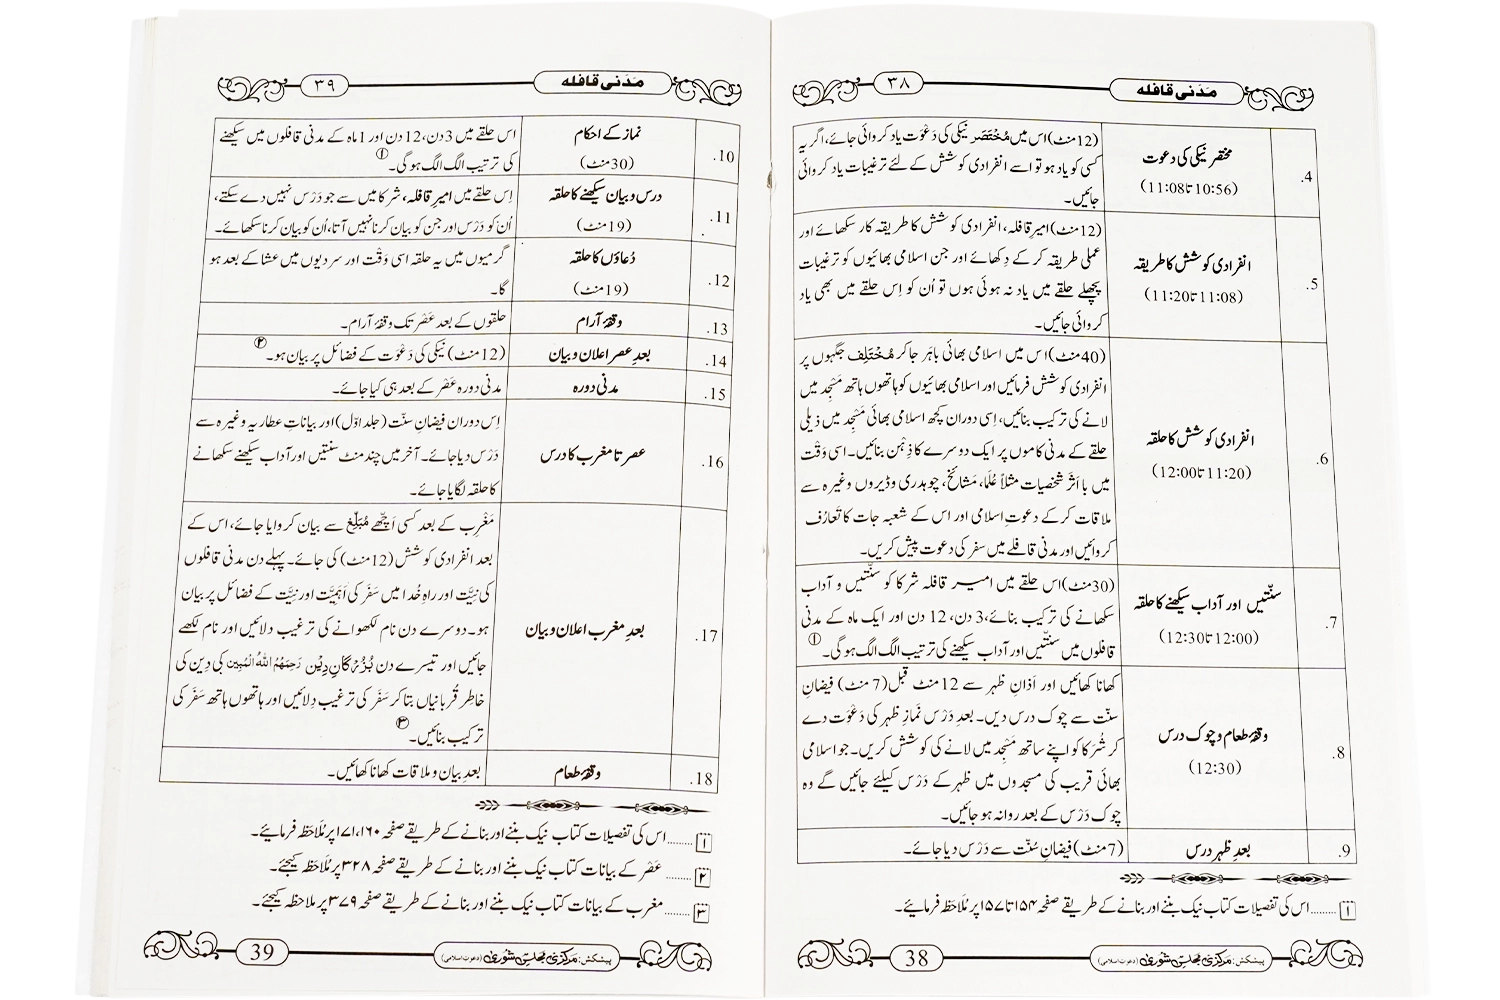 مَدَنی قافلہ
۳۸
4.
مختصر نیکی کی دعوت
(10:56تا11:08)
(12منٹ)اس میں مُخْتَصَر نیکی کی دَعْوَت یاد کروائی جائے، اگر یہ
کسی کو یاد ہو تو اسے انفرادی کوشش کے لئے ترغیبات یاد کروائی
جائیں۔
5.
انفرادی کوشش کا طریقہ
(11:08تا11:20)
(12منٹ)امیرِ قافلہ، انفرادی کوشش کا طریقہ کار سکھائے اور
عملی طریقہ کر کے دِکھائے اور جن اسلامی بھائیوں کو ترغیبات
پچھلے حلقے میں یاد نہ ہوئی ہوں تو اُن کو اِس حلقے میں بھی یاد
کروائی جائیں۔
6.
انفرادی کوشش کا حلقہ
(11:20تا12:00)
(40منٹ)اس میں اسلامی بھائی باہَر جاکر مُخْتَلِف جگہوں پر
انفرادی کوشش فرمائیں اور اسلامی بھائیوں کو ہاتھوں ہاتھ مَسْجِد میں
لانے کی ترکیب بنائیں، اِسی دوران کچھ اسلامی بھائی مَسْجِد میں ذیلی
حلقے کے مدنی کاموں پر ایک دوسرے کا ذِہْن بنائیں۔ اسی وَقْت
میں با اَثَر شخصیات مثلاً عُلَما، مَشائخ، چوہدری وڈیروں وغیرہ سے
ملاقات کرکے دعوتِ اسلامی اور اس کے شعبہ جات کا تَعَارُف
کروائیں اور مدنی قافلے میں سفر کی دعوت پیش کریں۔
7.
سنّتیں اور آداب سیکھنے کا حلقہ
(12:00تا12:30)
(30منٹ)اس حلقے میں امیرِ قافلہ شرکا کو سنّتیں و آداب
سکھانے کی ترکیب بنائے، 3 دن، 12 دن اور ایک ماہ کے مدنی
قافلوں میں سنّتیں اور آداب سیکھنے کی ترتیب الگ الگ ہوگی۔ ①
8.
وقفۂ طعام و چوک درس
(12:30)
کھانا کھائیں اور اَذانِ ظہر سے 12 منٹ قبل (7 منٹ) فیضانِ
سنّت سے چوک درس دیں۔ بعدِ دَرْس نَمازِ ظہر کی دَعْوَت دے
کر شُرَکا کو اپنے ساتھ مَسْجِد میں لانے کی کوشش کریں۔ جو اسلامی
بھائی قریب کی مسجدوں میں ظہر کے دَرْس کیلئے جائیں گے وہ
چوک دَرْس کے بعد روانہ ہو جائیں۔
9.
بعدِ ظہر درس
(7منٹ) فیضانِ سُنّت سے دَرْس دیا جائے۔
۱ ...... اس کی تفصیلات کتاب نیک بننے اور بنانے کے طریقے صفحہ ۱۵۴ تا ۱۵۷ پر مُلاحَظہ فرمائیے۔
پیشکش: مرکزی مجلسِ شوریٰ (دعوتِ اسلامی)
38
مَدَنی قافلہ
۳۹
10.
نماز کے احکام
(30منٹ)
اس حلقے میں 3 دن، 12 دن اور 1 ماہ کے مدنی قافلوں میں سیکھنے
کی ترتیب الگ الگ ہوگی۔ ①
11.
درس و بیان سیکھنے کا حلقہ
(19منٹ)
اِس حلقے میں امیرِ قافلہ، شرکا میں سے جو دَرْس نہیں دے سکتے،
اُن کو دَرْس اور جن کو بیان کرنا نہیں آتا، اُن کو بیان کرنا سکھائے۔
12.
دُعاؤں کا حلقہ
(19منٹ)
گرمیوں میں یہ حلقہ اسی وَقْت اور سردیوں میں عشا کے بعد ہو
گا۔
13.
وقفۂ آرام
حلقوں کے بعد عَصْر تک وقفۂ آرام۔
14.
بعدِ عصر اعلان و بیان
(12منٹ) نیکی کی دَعْوَت کے فضائل پر بیان ہو۔ ②
15.
مدنی دورہ
مدنی دورہ عَصْر کے بعد ہی کیا جائے۔
16.
عصر تا مغرب کا درس
اِس دوران فیضانِ سنّت (جلد اوّل) اور بیاناتِ عطاریہ وغیرہ سے
دَرْس دیا جائے۔ آخر میں چند منٹ سنتیں اور آداب سیکھنے سکھانے
کا حلقہ لگایا جائے۔
17.
بعدِ مغرب اعلان و بیان
مَغْرِب کے بعد کسی اَچّھے مُبَلِّغ سے بیان کروایا جائے، اس کے
بعد انفرادی کوشش (12منٹ) کی جائے۔ پہلے دن مدنی قافلوں
کی نِیَّت اور راہِ خُدا میں سَفَر کی اَہَمِّیَّت اور نِیَّت کے فضائل پر بیان
ہو۔ دوسرے دن نام لکھوانے کی ترغیب دلائیں اور نام لکھے
جائیں اور تیسرے دن بُزُرْگانِ دِیْن رَحِمَهُمُ اللهُ الْمُبِين کی دِین کی
خاطِر قُربانیاں بتا کر سَفَر کی ترغیب دِلائیں اور ہاتھوں ہاتھ سَفَر کی
ترکیب بنائیں۔ ③
18.
وقفۂ طعام
بعدِ بیان و ملاقات کھانا کھائیں۔
۱ ...... اس کی تفصیلات کتاب نیک بننے اور بنانے کے طریقے صفحہ ۱۶۰، ۱۷۱ پر مُلاحَظہ فرمائیے۔
۲ ...... عَصْر کے بیانات کتاب نیک بننے اور بنانے کے طریقے صفحہ ۳۲۸ پر مُلاحَظہ کیجئے۔
۳ ...... مغرب کے بیانات کتاب نیک بننے اور بنانے کے طریقے صفحہ ۳۷۹ پر ملاحظہ کیجئے۔
پیشکش: مرکزی مجلسِ شوریٰ (دعوتِ اسلامی)
39